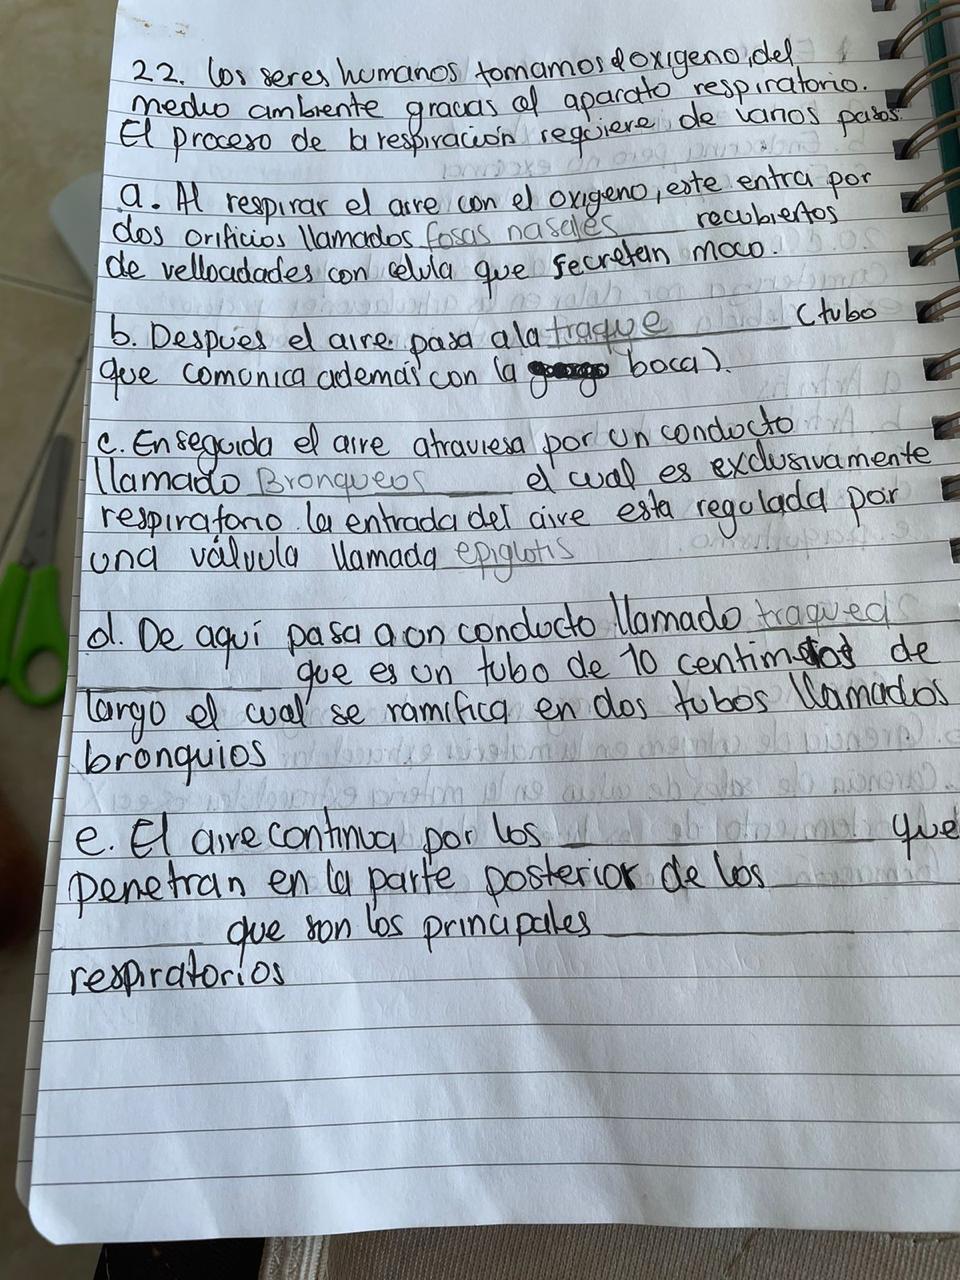 22. los seres humanos tomamos el oxigeno, del
medio ambiente gracias al aparato respiratorio.
El proceso de la respiración requiere de varios pasos
a. Al respirar el aire con el oxigeno, este entra por
dos orificios llamados fosas nasales recubiertos
de vellocidades con celula que secretan moco.
b. Después el aire pasa a la traque (tubo
que comunica además con la boca).
c. En seguida el aire atraviesa por un conducto
llamado Bronqueos el cual es exclusivamente
respiratorio la entrada del aire esta regulada por
una válvula llamada epiglotis
d. De aquí pasa a un conducto llamado traquea
que es un tubo de 10 centimetros de
largo el cual se ramifica en dos tubos llamados
bronquios
e. El aire continua por los que
penetran en la parte posterior de los
que son los principales
respiratorios